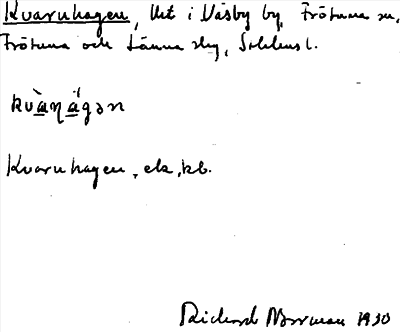 Kvarnhagen, lht i Väsby by, Frötuna sn,
Frötuna och Länna slg, Sthlms l.
kvàŋágən
Kvarnhagen, ek, kb.
Richard Norrman 1930